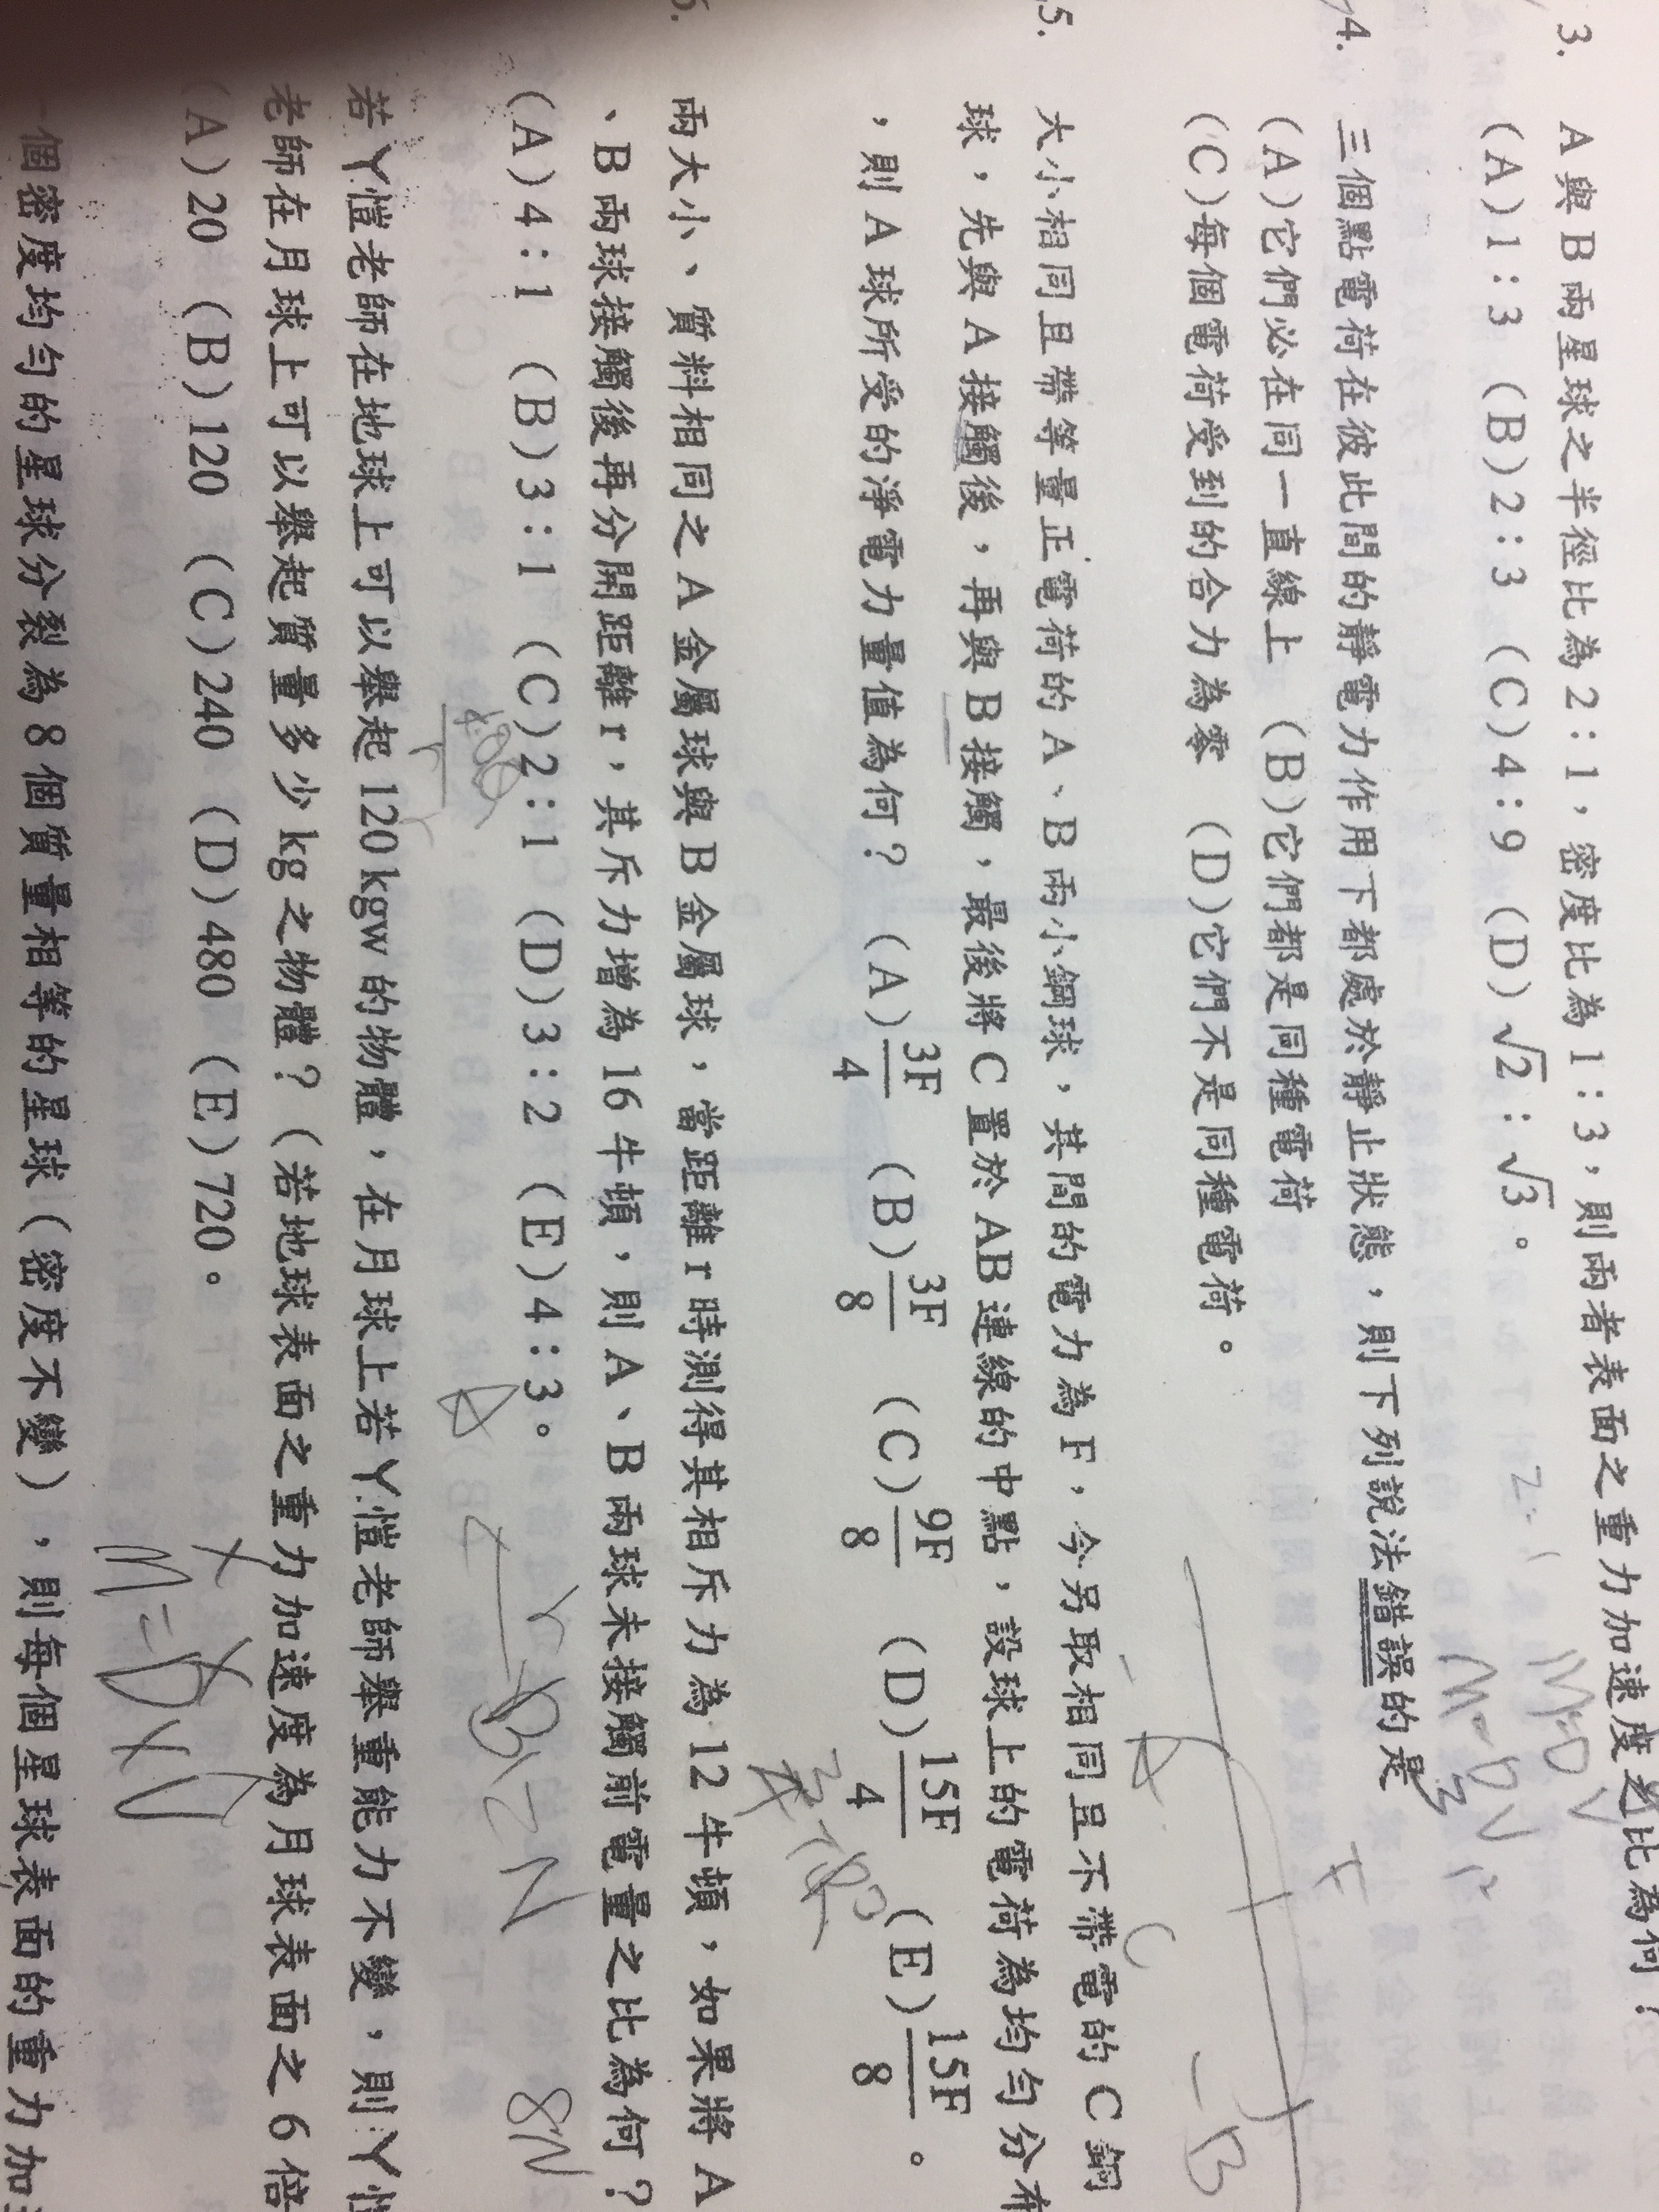 3. A與B兩星球之半徑比為2:1,密度比為1:3,則兩者表面之重力加速度之比為何?
(A)1:3 (B)2:3 (C)4:9 (D)√2:√3。
4. 三個點電荷在彼此間的靜電力作用下都處於靜止狀態,則下列說法錯誤的是
(A)它們必在同一直線上 (B)它們都是同種電荷
(C)每個電荷受到的合力為零 (D)它們不是同種電荷。
5. 大小相同且帶等量正電荷的A、B兩小鋼球,其間的電力為F,今另取相同且不帶電的C鋼
球,先與A接觸後,再與B接觸,最後將C置於AB連線的中點,設球上的電荷為均勻分布
,則A球所受的淨電力量值為何? (A)3F/4 (B)3F/8 (C)9F/8 (D)15F/4 (E)15F/8。
兩大小、質料相同之A金屬球與B金屬球,當距離r時測得其相斥力為12牛頓,如果將A
、B兩球接觸後再分開距離r,其斥力增為16牛頓,則A、B兩球未接觸前電量之比為何?
(A)4:1 (B)3:1 (C)2:1 (D)3:2 (E)4:3。
若丫愷老師在地球上可以舉起120kgw的物體,在月球上若丫愷老師舉重能力不變,則丫愷
老師在月球上可以舉起質量多少kg之物體?(若地球表面之重力加速度為月球表面之6倍
(A)20 (B)120 (C)240 (D)480 (E)720。
一個密度均勻的星球分裂為8個質量相等的星球(密度不變),則每個星球表面的重力加
M=DV
M=DV
A
C
B
M=D×V
8N